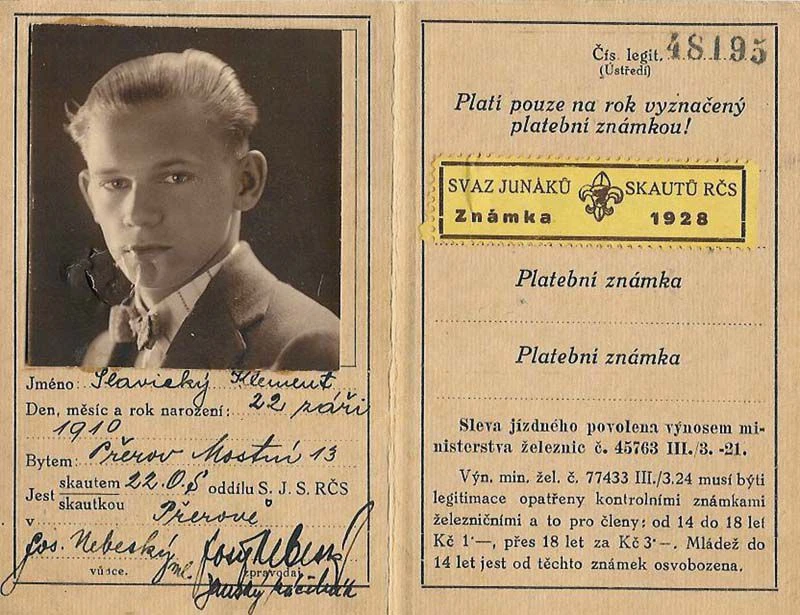 Jméno: Slavický Klement
Den, měsíc a rok narození: 22 září
1910
Bytem: Přerov Mostní 13
Jest skautem 22. O.S oddílu S. J. S. RČS
skautkou
v Přerově
Jos. Nebeský ml.
vůdce. zpravodaj
Čís. legit. 48195
(Ústředí)
Platí pouze na rok vyznačený
platební známkou!
SVAZ JUNÁKŮ SKAUTŮ RČS
Známka 1928
Platební známka
Platební známka
Sleva jízdného povolena výnosem mi-
nisterstva železnic č. 45763 III./3. -21.
Výn. min. žel. č. 77433 III./3.24 musí býti
legitimace opatřeny kontrolními známkami
železničními a to pro členy: od 14 do 18 let
Kč 1·—, přes 18 let za Kč 3·—. Mládež do
14 let jest od těchto známek osvobozena.